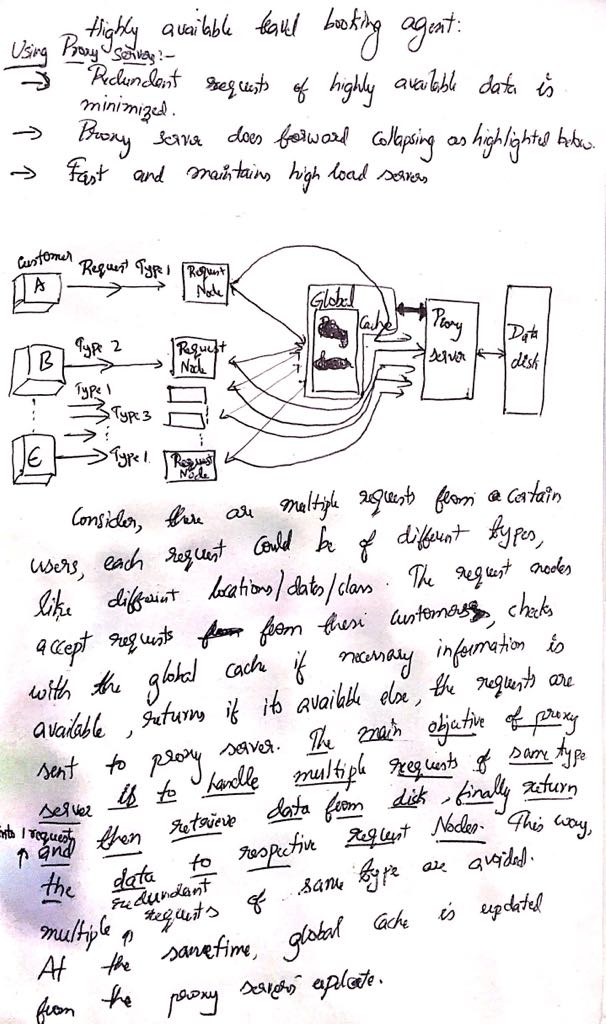 Highly available travel booking agent:
Using Proxy Server:-
→ Redundant requests of highly available data is
minimized.
→ Proxy server does forward collapsing as highlighted below.
→ Fast and maintains high load servers
Customer
A
Request Type 1
Request
Node
Global
Cache
Proxy
server
Data
disk
B
Type 2
Request
Node
Type 1
Type 3
E
Type 1.
Request
Node
Consider, there are multiple requests from a certain
users, each request could be of different types,
like different locations/dates/class. The request nodes
accept requests from these customers, checks
with the global cache if necessary information is
available, returns if its available else, the requests are
sent to proxy server. The main objective of proxy
server is to handle multiple requests of same type
into 1 request
and then retrieve data from disk, finally return
the data to respective request Nodes. This way,
multiple redundant requests of same type are avoided.
At the sametime, global cache is updated
from the proxy servers update.